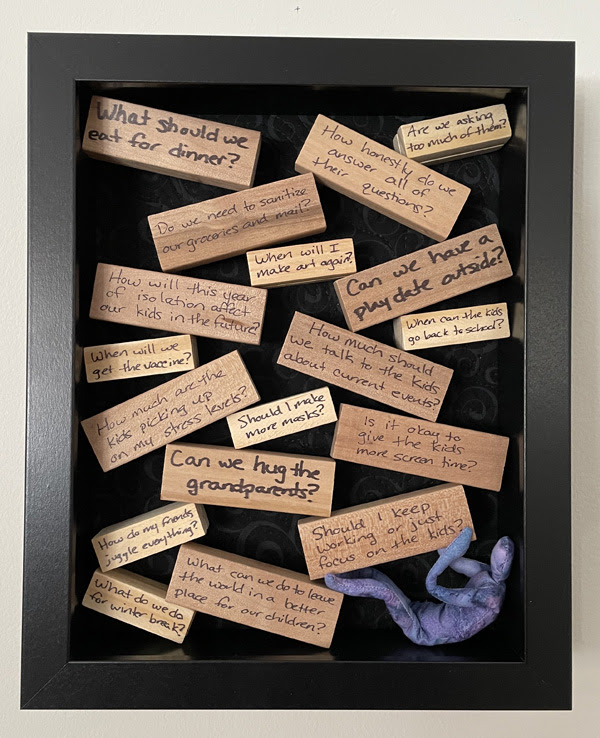 What should we
eat for dinner?
How honestly do we
answer all of
their questions?
Are we asking
too much of them?
Do we need to sanitize
our groceries and mail?
When will I
make art again?
Can we have a
playdate outside?
How will this year
of isolation affect
our kids in the future?
When can the kids
go back to school?
When will we
get the vaccine?
How much should
we talk to the kids
about current events?
How much are the
kids picking up
on my stress levels?
Should I make
more masks?
Is it okay to
give the kids
more screen time?
Can we hug the
grandparents?
Should I keep
working or just
focus on the kids?
How do my friends
juggle everything?
What can we do to leave
the world in a better
place for our children?
What do we do
for winter break?